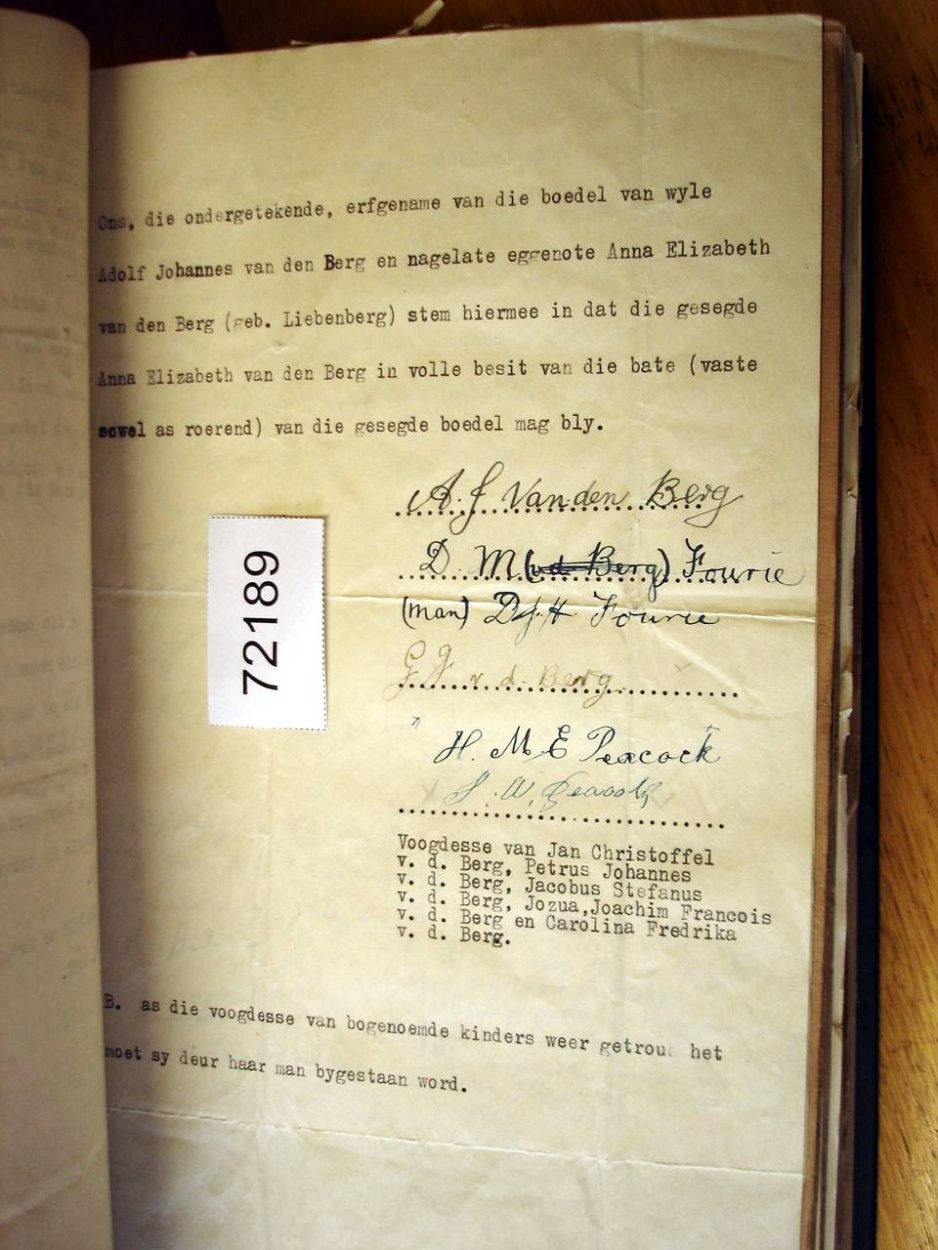 Ons, die ondergetekende, erfgename van die boedel van wyle
Adolf Johannes van den Berg en nagelate eggenote Anna Elizabeth
van den Berg (geb. Liebenberg) stem hiermee in dat die gesegde
Anna Elizabeth van den Berg in volle besit van die bate (vaste
sowel as roerend) van die gesegde boedel mag bly.
A. J Van den Berg
D. M (v d Berg) Fourie
(man) D J H Fourie
72189
v. d. Berg
H. M E Peacock
Voogdesse van Jan Christoffel
v. d. Berg, Petrus Johannes
v. d. Berg, Jacobus Stefanus
v. d. Berg, Jozua,Joachim Francois
v. d. Berg en Carolina Fredrika
v. d. Berg.
B. as die voogdesse van bogenoemde kinders weer getrou het
moet sy deur haar man bygestaan word.